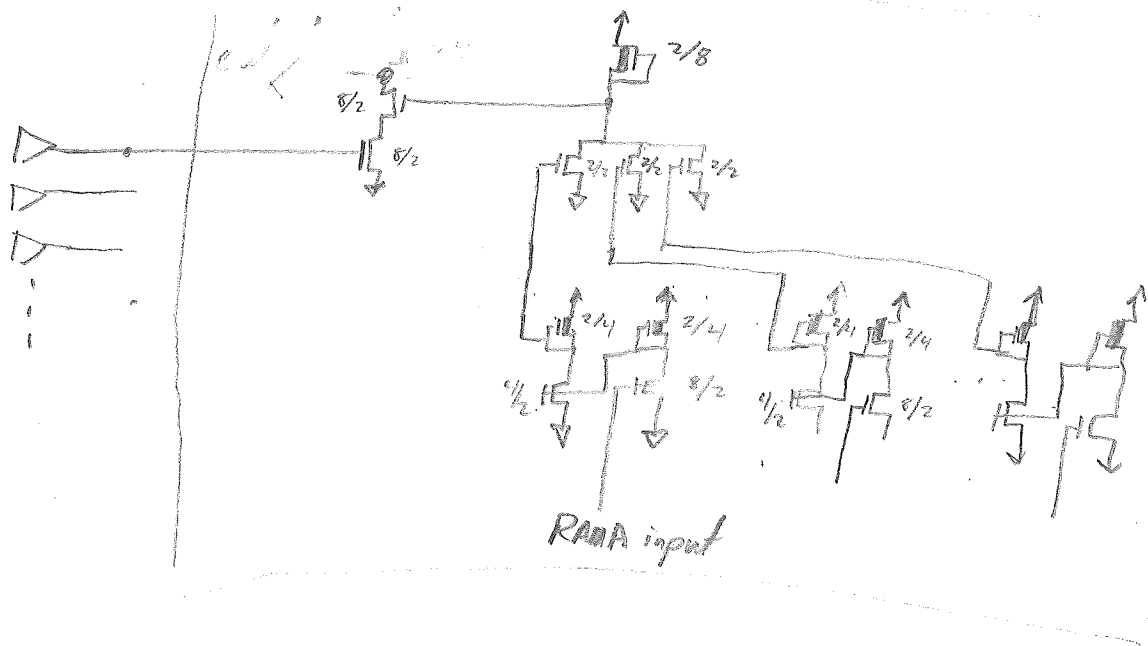 2/8
8/2
8/2
2/2 2/2 2/2
2/4 2/4 2/4 2/4
4/2 8/2 4/2 8/2
RAMA input